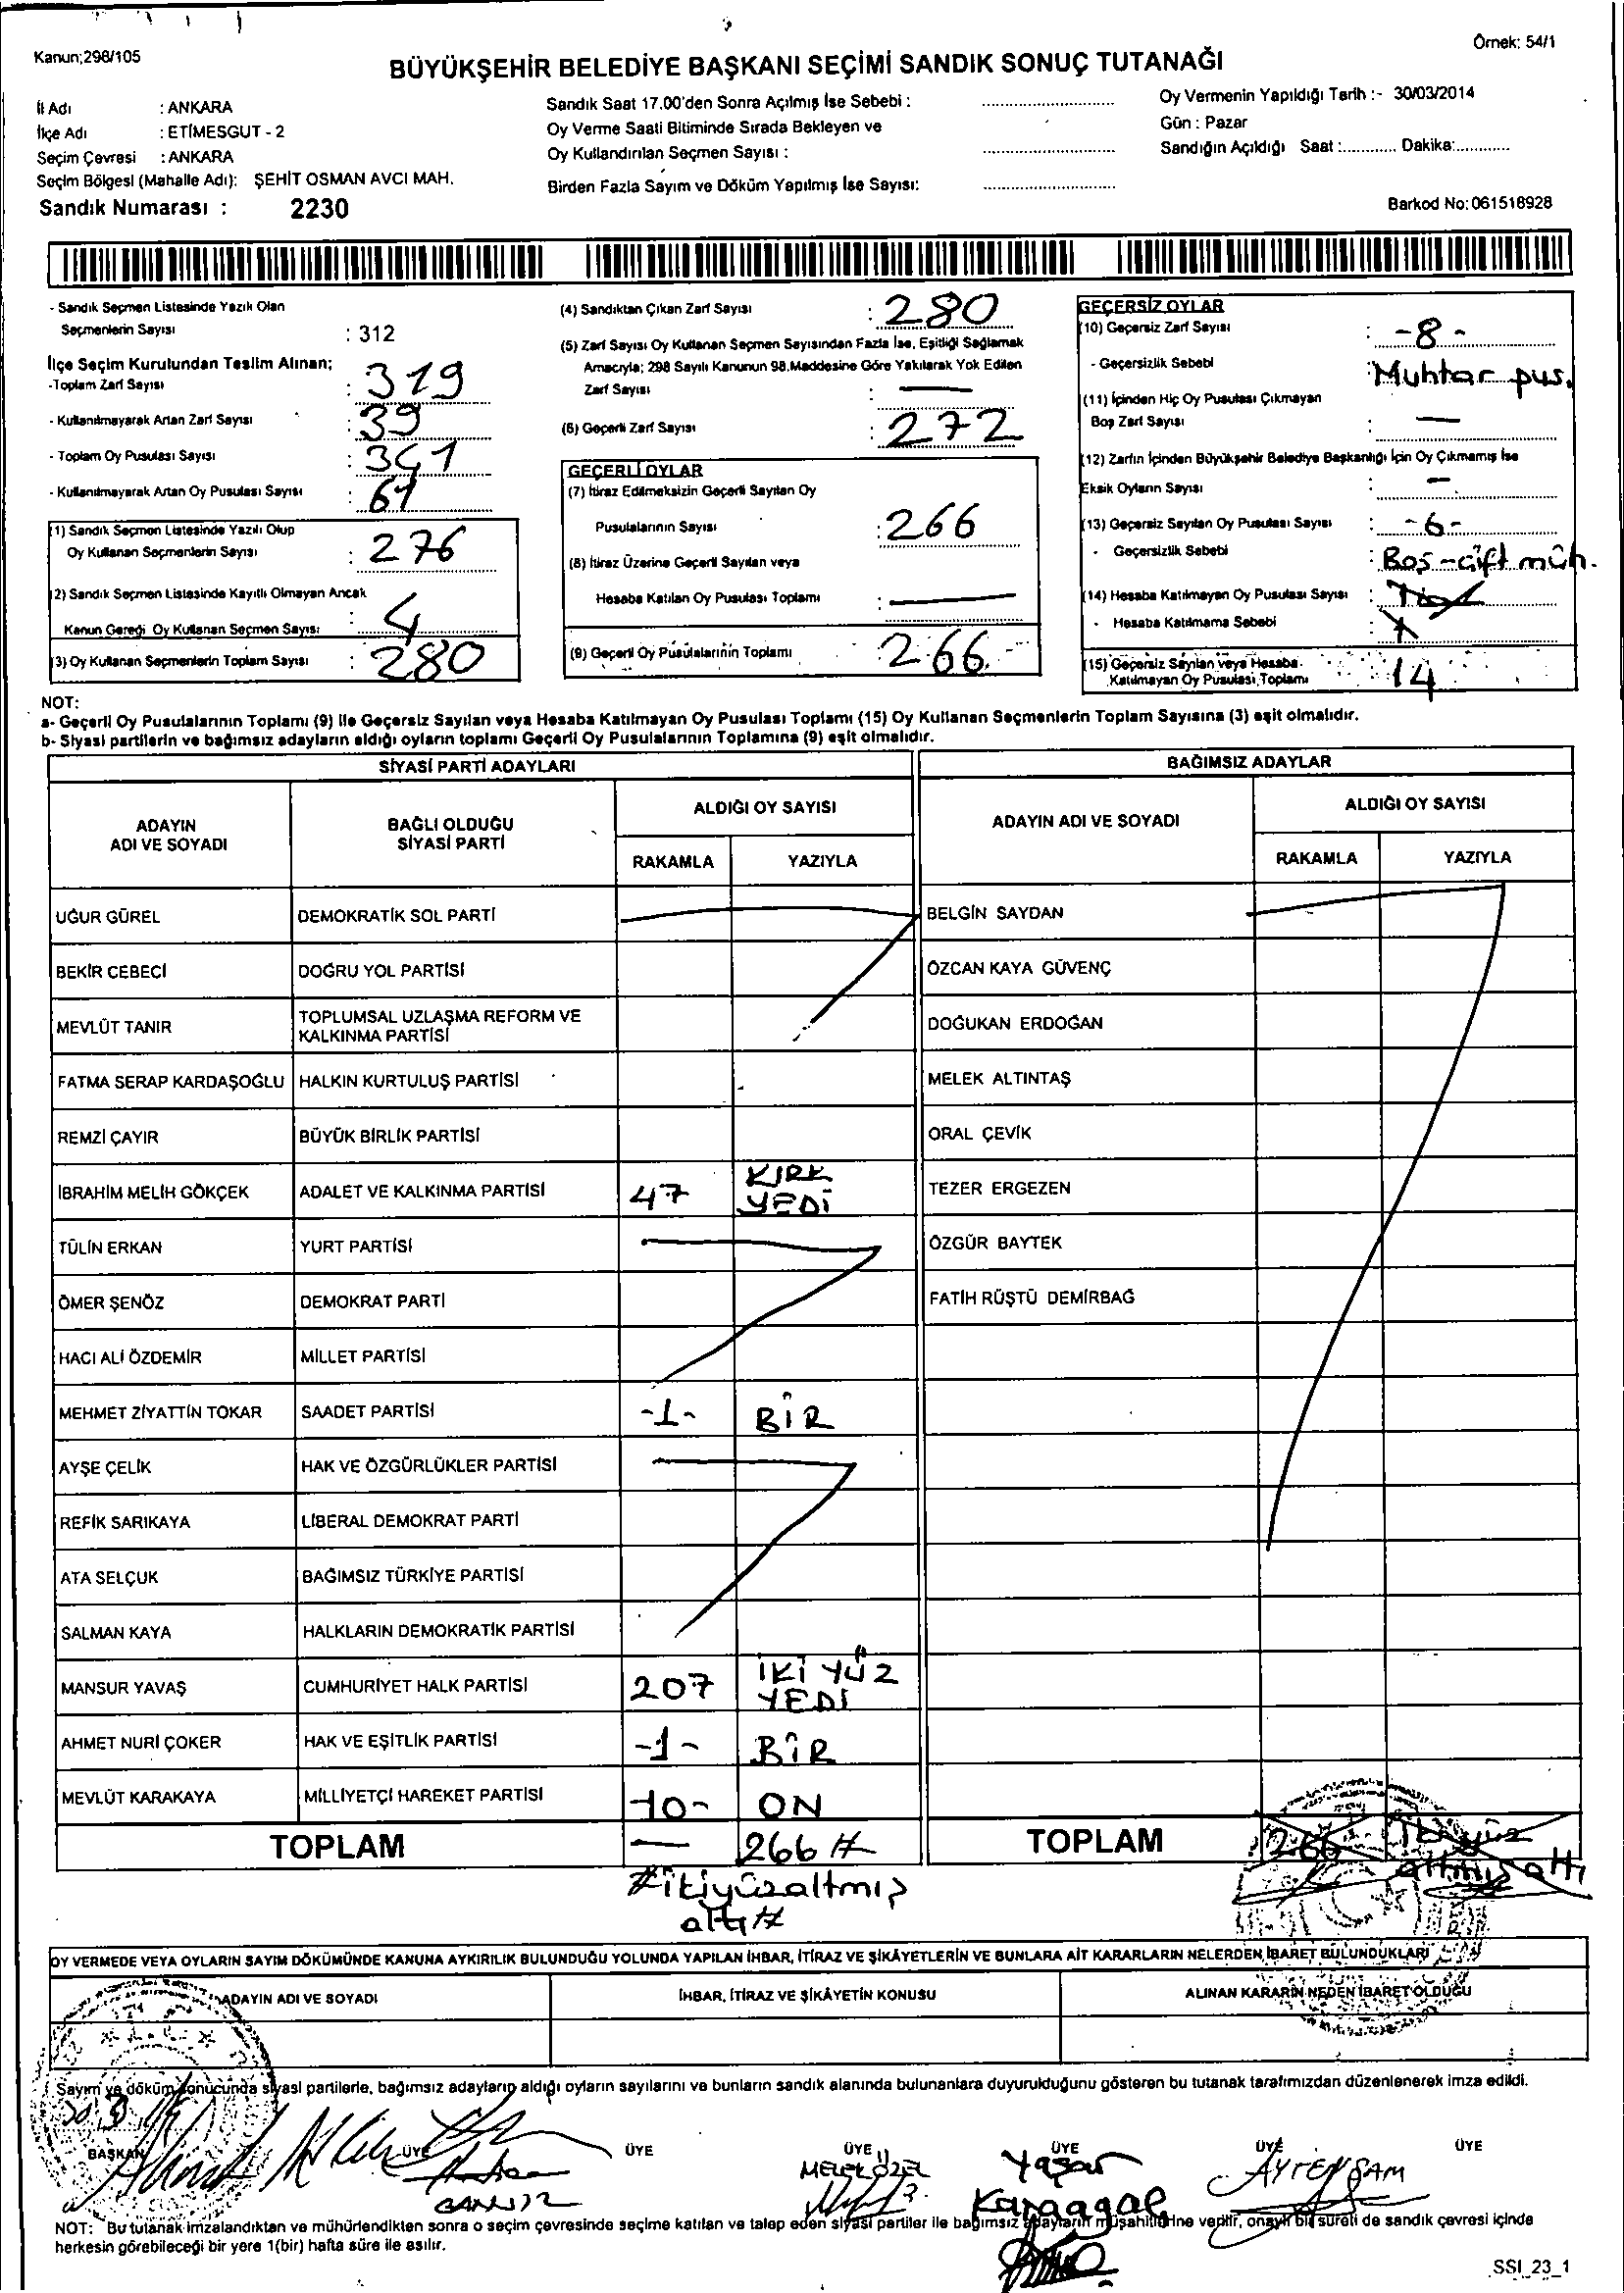 Kanun;298/105
Örnek: 54/1
BÜYÜKŞEHİR BELEDİYE BAŞKANI SEÇİMİ SANDIK SONUÇ TUTANAĞI
İl Adı : ANKARA
İlçe Adı : ETİMESGUT - 2
Seçim Çevresi : ANKARA
Seçim Bölgesi (Mahalle Adı): ŞEHİT OSMAN AVCI MAH.
Sandık Numarası : 2230
Sandık Saat 17.00'den Sonra Açılmış İse Sebebi :
Oy Verme Saati Bitiminde Sırada Bekleyen ve
Oy Kullandırılan Seçmen Sayısı :
Birden Fazla Sayım ve Döküm Yapılmış İse Sayısı:
Oy Vermenin Yapıldığı Tarih :- 30/03/2014
Gün : Pazar
Sandığın Açıldığı Saat :............ Dakika:............
Barkod No: 061518928
- Sandık Seçmen Listesinde Yazılı Olan
Seçmenlerin Sayısı : 312
İlçe Seçim Kurulundan Teslim Alınan;
-Toplam Zarf Sayısı : 319
- Kullanılmayarak Artan Zarf Sayısı : 39
- Toplam Oy Pusulası Sayısı : 341
- Kullanılmayarak Artan Oy Pusulası Sayısı : 61
(1) Sandık Seçmen Listesinde Yazılı Olup
Oy Kullanan Seçmenlerin Sayısı : 276
(2) Sandık Seçmen Listesinde Kayıtlı Olmayan Ancak
Kanun Gereği Oy Kullanan Seçmen Sayısı : 4
(3) Oy Kullanan Seçmenlerin Toplam Sayısı : 280
(4) Sandıktan Çıkan Zarf Sayısı : 280
(5) Zarf Sayısı Oy Kullanan Seçmen Sayısından Fazla İse, Eşitliği Sağlamak
Amacıyla; 298 Sayılı Kanunun 98.Maddesine Göre Yakılarak Yok Edilen
Zarf Sayısı : —
(6) Geçerli Zarf Sayısı : 272
GEÇERLİ OYLAR
(7) İtiraz Edilmeksizin Geçerli Sayılan Oy
Pusulalarının Sayısı : 266
(8) İtiraz Üzerine Geçerli Sayılan veya
Hesaba Katılan Oy Pusulası Toplamı : —
(9) Geçerli Oy Pusulalarının Toplamı : 266
GEÇERSİZ OYLAR
(10) Geçersiz Zarf Sayısı : -8-
- Geçersizlik Sebebi : Muhtar pus.
(11) İçinden Hiç Oy Pusulası Çıkmayan
Boş Zarf Sayısı : —
(12) Zarfın İçinden Büyükşehir Belediye Başkanlığı İçin Oy Çıkmamış İse
Eksik Oyların Sayısı : —
(13) Geçersiz Sayılan Oy Pusulası Sayısı : -6-
- Geçersizlik Sebebi : Boş-çift müh.
(14) Hesaba Katılmayan Oy Pusulası Sayısı :
- Hesaba Katılmama Sebebi :
(15) Geçersiz Sayılan veya Hesaba
Katılmayan Oy Pusulası Toplamı : 14
NOT:
a- Geçerli Oy Pusulalarının Toplamı (9) ile Geçersiz Sayılan veya Hesaba Katılmayan Oy Pusulası Toplamı (15) Oy Kullanan Seçmenlerin Toplam Sayısına (3) eşit olmalıdır.
b- Siyasi partilerin ve bağımsız adayların aldığı oyların toplamı Geçerli Oy Pusulalarının Toplamına (9) eşit olmalıdır.
SİYASİ PARTİ ADAYLARI
ADAYIN ADI VE SOYADI
BAĞLI OLDUĞU SİYASİ PARTİ
ALDIĞI OY SAYISI
RAKAMLA YAZIYLA
BAĞIMSIZ ADAYLAR
ADAYIN ADI VE SOYADI
ALDIĞI OY SAYISI
RAKAMLA YAZIYLA
UĞUR GÜREL DEMOKRATİK SOL PARTİ BELGİN SAYDAN
BEKİR CEBECİ DOĞRU YOL PARTİSİ ÖZCAN KAYA GÜVENÇ
MEVLÜT TANIR TOPLUMSAL UZLAŞMA REFORM VE KALKINMA PARTİSİ DOĞUKAN ERDOĞAN
FATMA SERAP KARDAŞOĞLU HALKIN KURTULUŞ PARTİSİ MELEK ALTINTAŞ
REMZİ ÇAYIR BÜYÜK BİRLİK PARTİSİ ORAL ÇEVİK
İBRAHİM MELİH GÖKÇEK ADALET VE KALKINMA PARTİSİ 47 KIRK YEDİ TEZER ERGEZEN
TÜLİN ERKAN YURT PARTİSİ ÖZGÜR BAYTEK
ÖMER ŞENÖZ DEMOKRAT PARTİ FATİH RÜŞTÜ DEMİRBAĞ
HACI ALİ ÖZDEMİR MİLLET PARTİSİ
MEHMET ZİYATTİN TOKAR SAADET PARTİSİ -1- BİR
AYŞE ÇELİK HAK VE ÖZGÜRLÜKLER PARTİSİ
REFİK SARIKAYA LİBERAL DEMOKRAT PARTİ
ATA SELÇUK BAĞIMSIZ TÜRKİYE PARTİSİ
SALMAN KAYA HALKLARIN DEMOKRATİK PARTİSİ
MANSUR YAVAŞ CUMHURİYET HALK PARTİSİ 207 İKİ YÜZ YEDİ
AHMET NURİ ÇOKER HAK VE EŞİTLİK PARTİSİ -1- BİR
MEVLÜT KARAKAYA MİLLİYETÇİ HAREKET PARTİSİ -10- ON
TOPLAM — 266 #
# ikiyüzaltmış
altı #
TOPLAM 266 İki yüz altmış altı
OY VERMEDE VEYA OYLARIN SAYIM DÖKÜMÜNDE KANUNA AYKIRILIK BULUNDUĞU YOLUNDA YAPILAN İHBAR, İTİRAZ VE ŞİKÂYETLERİN VE BUNLARA AİT KARARLARIN NELERDEN İBARET BULUNDUKLARI
ADAYIN ADI VE SOYADI
İHBAR, İTİRAZ VE ŞİKÂYETİN KONUSU
ALINAN KARARIN NEDEN İBARET OLDUĞU
Sayım ve döküm sonucunda siyasi partilerle, bağımsız adayların aldığı oyların sayılarını ve bunların sandık alanında bulunanlara duyurulduğunu gösteren bu tutanak tarafımızdan düzenlenerek imza edildi.
BAŞKAN ÜYE ÜYE ÜYE ÜYE ÜYE ÜYE
MELEK ÖZEL
Yaşar
Karaagaç
AYTEN ŞAM
NOT: Bu tutanak imzalandıktan ve mühürlendikten sonra o seçim çevresinde seçime katılan ve talep eden siyasi partiler ile bağımsız adayların müşahitlerine verilir, onaylı bir sureti de sandık çevresi içinde
herkesin görebileceği bir yere 1(bir) hafta süre ile asılır.
SSI_23_1